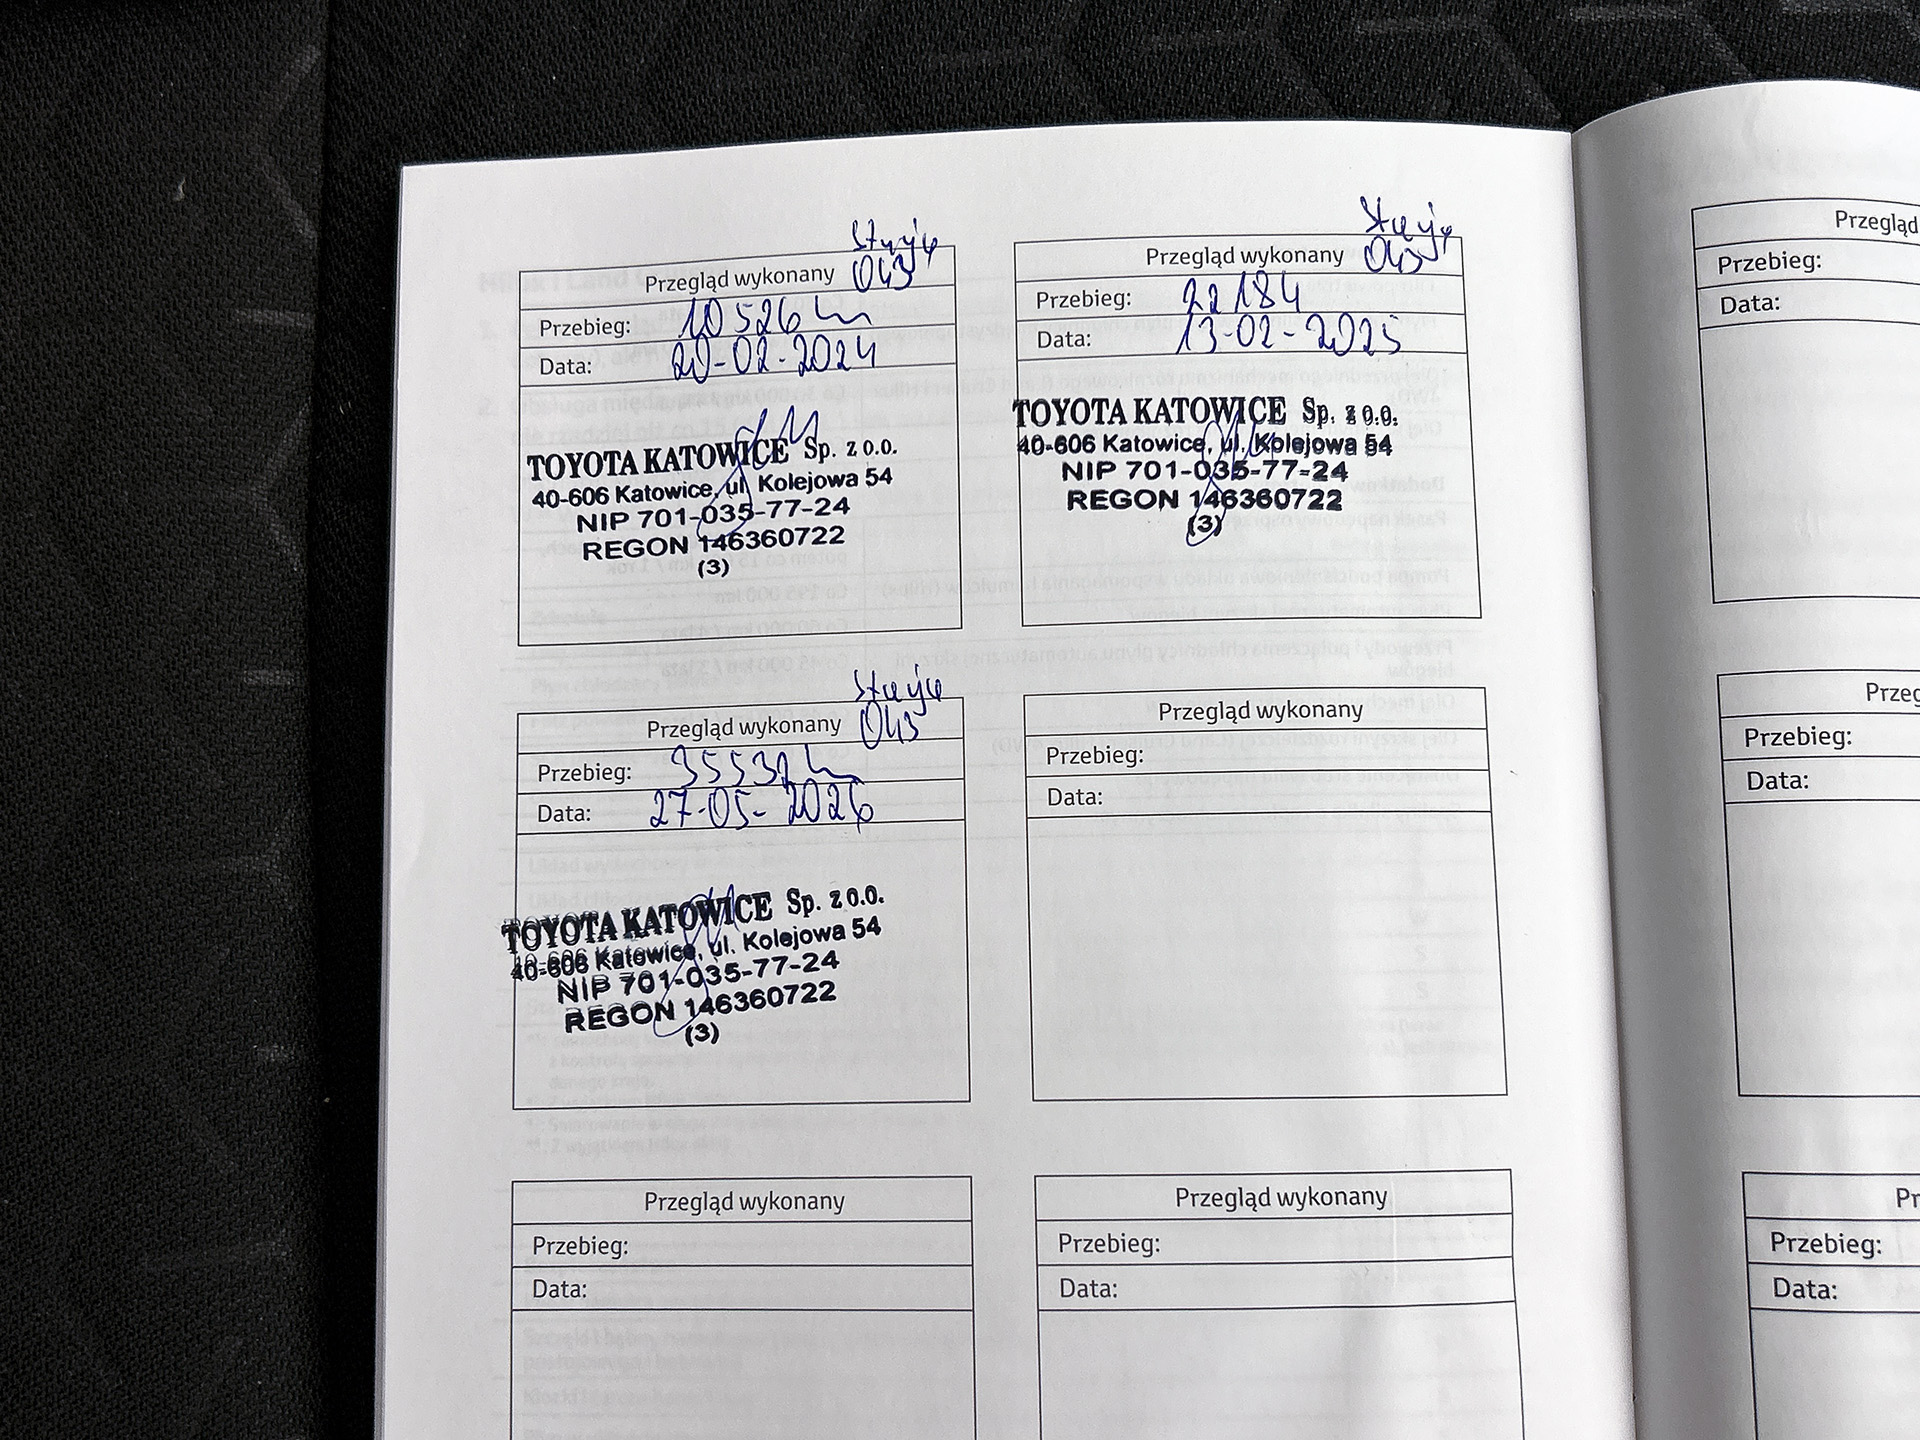 Stacja
Przegląd wykonany 043
Przebieg: 10 526 km
Data: 20-02-2024
TOYOTA KATOWICE Sp. z o.o.
40-606 Katowice, ul. Kolejowa 54
NIP 701-035-77-24
REGON 146360722
(3)
Stacja
Przegląd wykonany 043
Przebieg: 22 184
Data: 13-02-2025
TOYOTA KATOWICE Sp. z o.o.
40-606 Katowice, ul. Kolejowa 54
NIP 701-035-77-24
REGON 146360722
(3)
Stacja
Przegląd wykonany 043
Przebieg: 35532 km
Data: 27-05-2026
TOYOTA KATOWICE Sp. z o.o.
40-606 Katowice, ul. Kolejowa 54
NIP 701-035-77-24
REGON 146360722
(3)
Przegląd wykonany
Przebieg:
Data:
Przegląd wykonany
Przebieg:
Data:
Przegląd wykonany
Przebieg:
Data:
Przegląd
Przebieg:
Data:
Przebieg:
Data:
Przebieg:
Data: